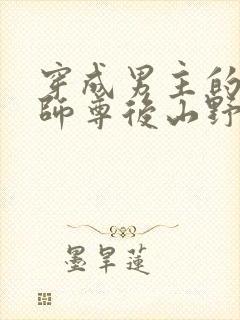 穿成男主的
師尊後山野
墨旱蓮